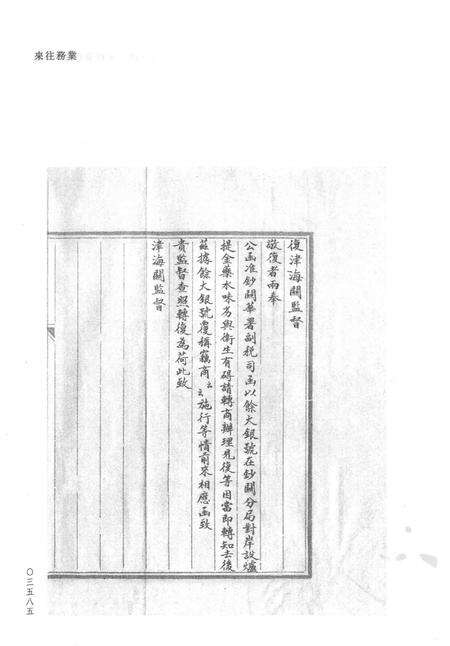 業務往來
復津海關監督
敬復者兩奉
公函准鈔關華署副稅司函以餘大銀號在鈔關分局對岸設爐
提金藥水味劣與衛生有碍請轉商辦理見復等因當即轉知去後
茲據餘大銀號覆稱竊商云云施行等情前來相應函致
貴監督查照轉復為荷此致
津海關監督
〇三五八五